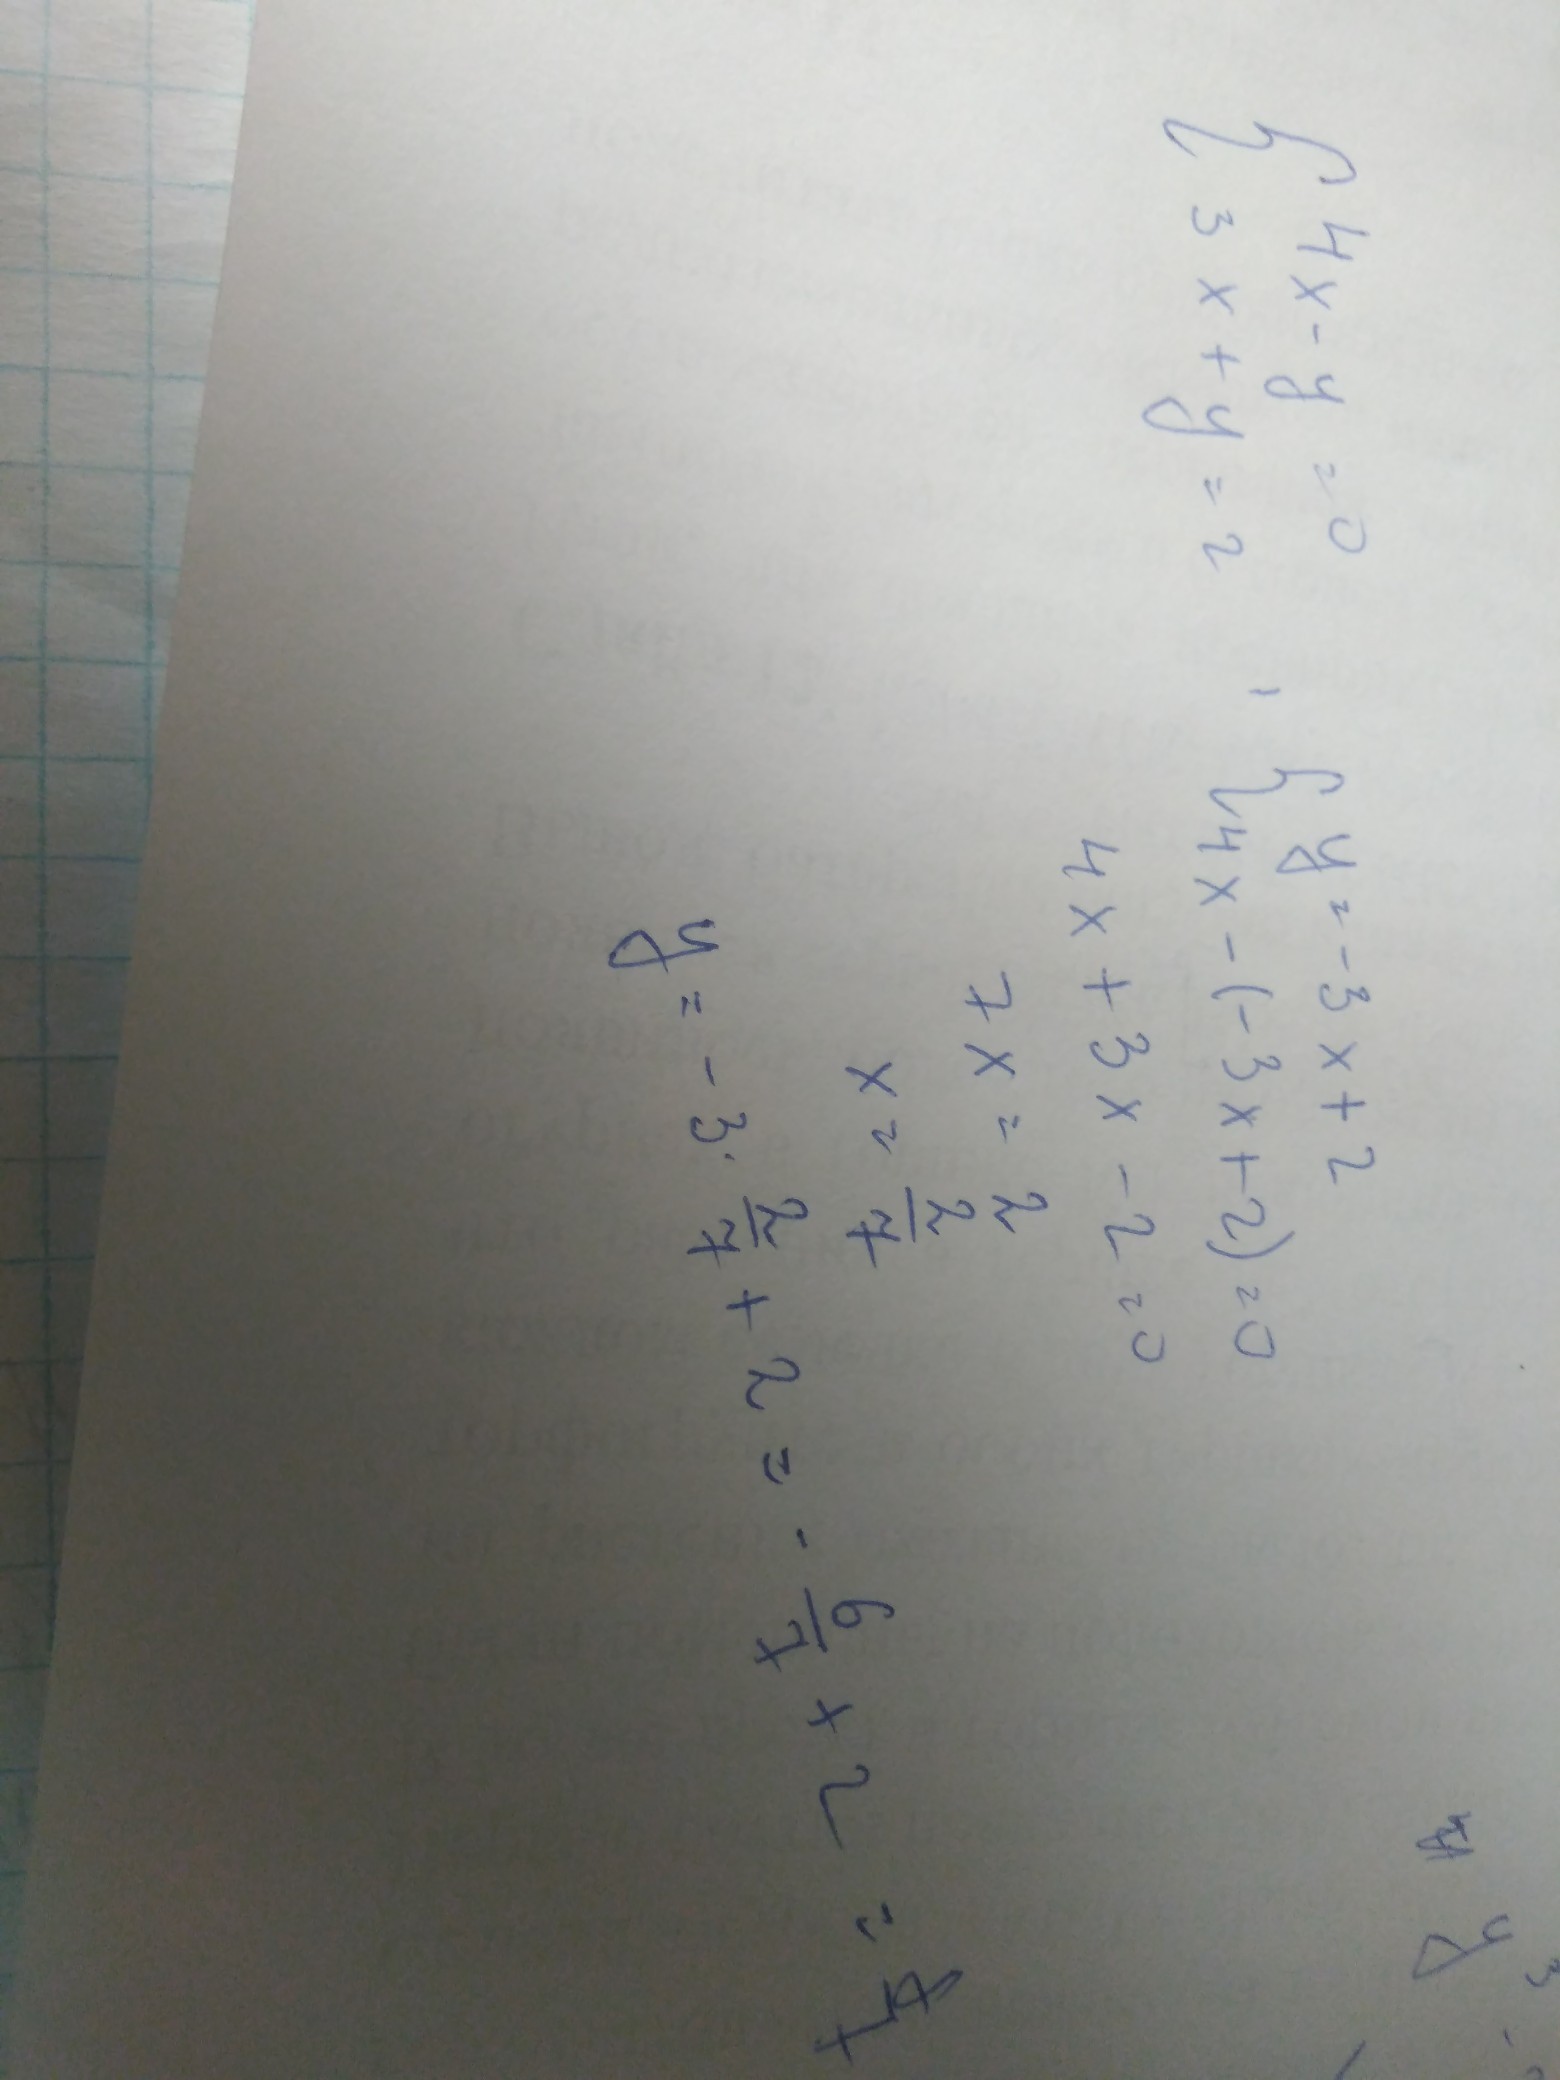 { 4x - y = 0
3x + y = 2
{ y = -3x + 2
4x - (-3x + 2) = 0
4x + 3x - 2 = 0
7x = 2
x = 2/7
y = -3 · 2/7 + 2 = - 6/7 + 2 =
y 3